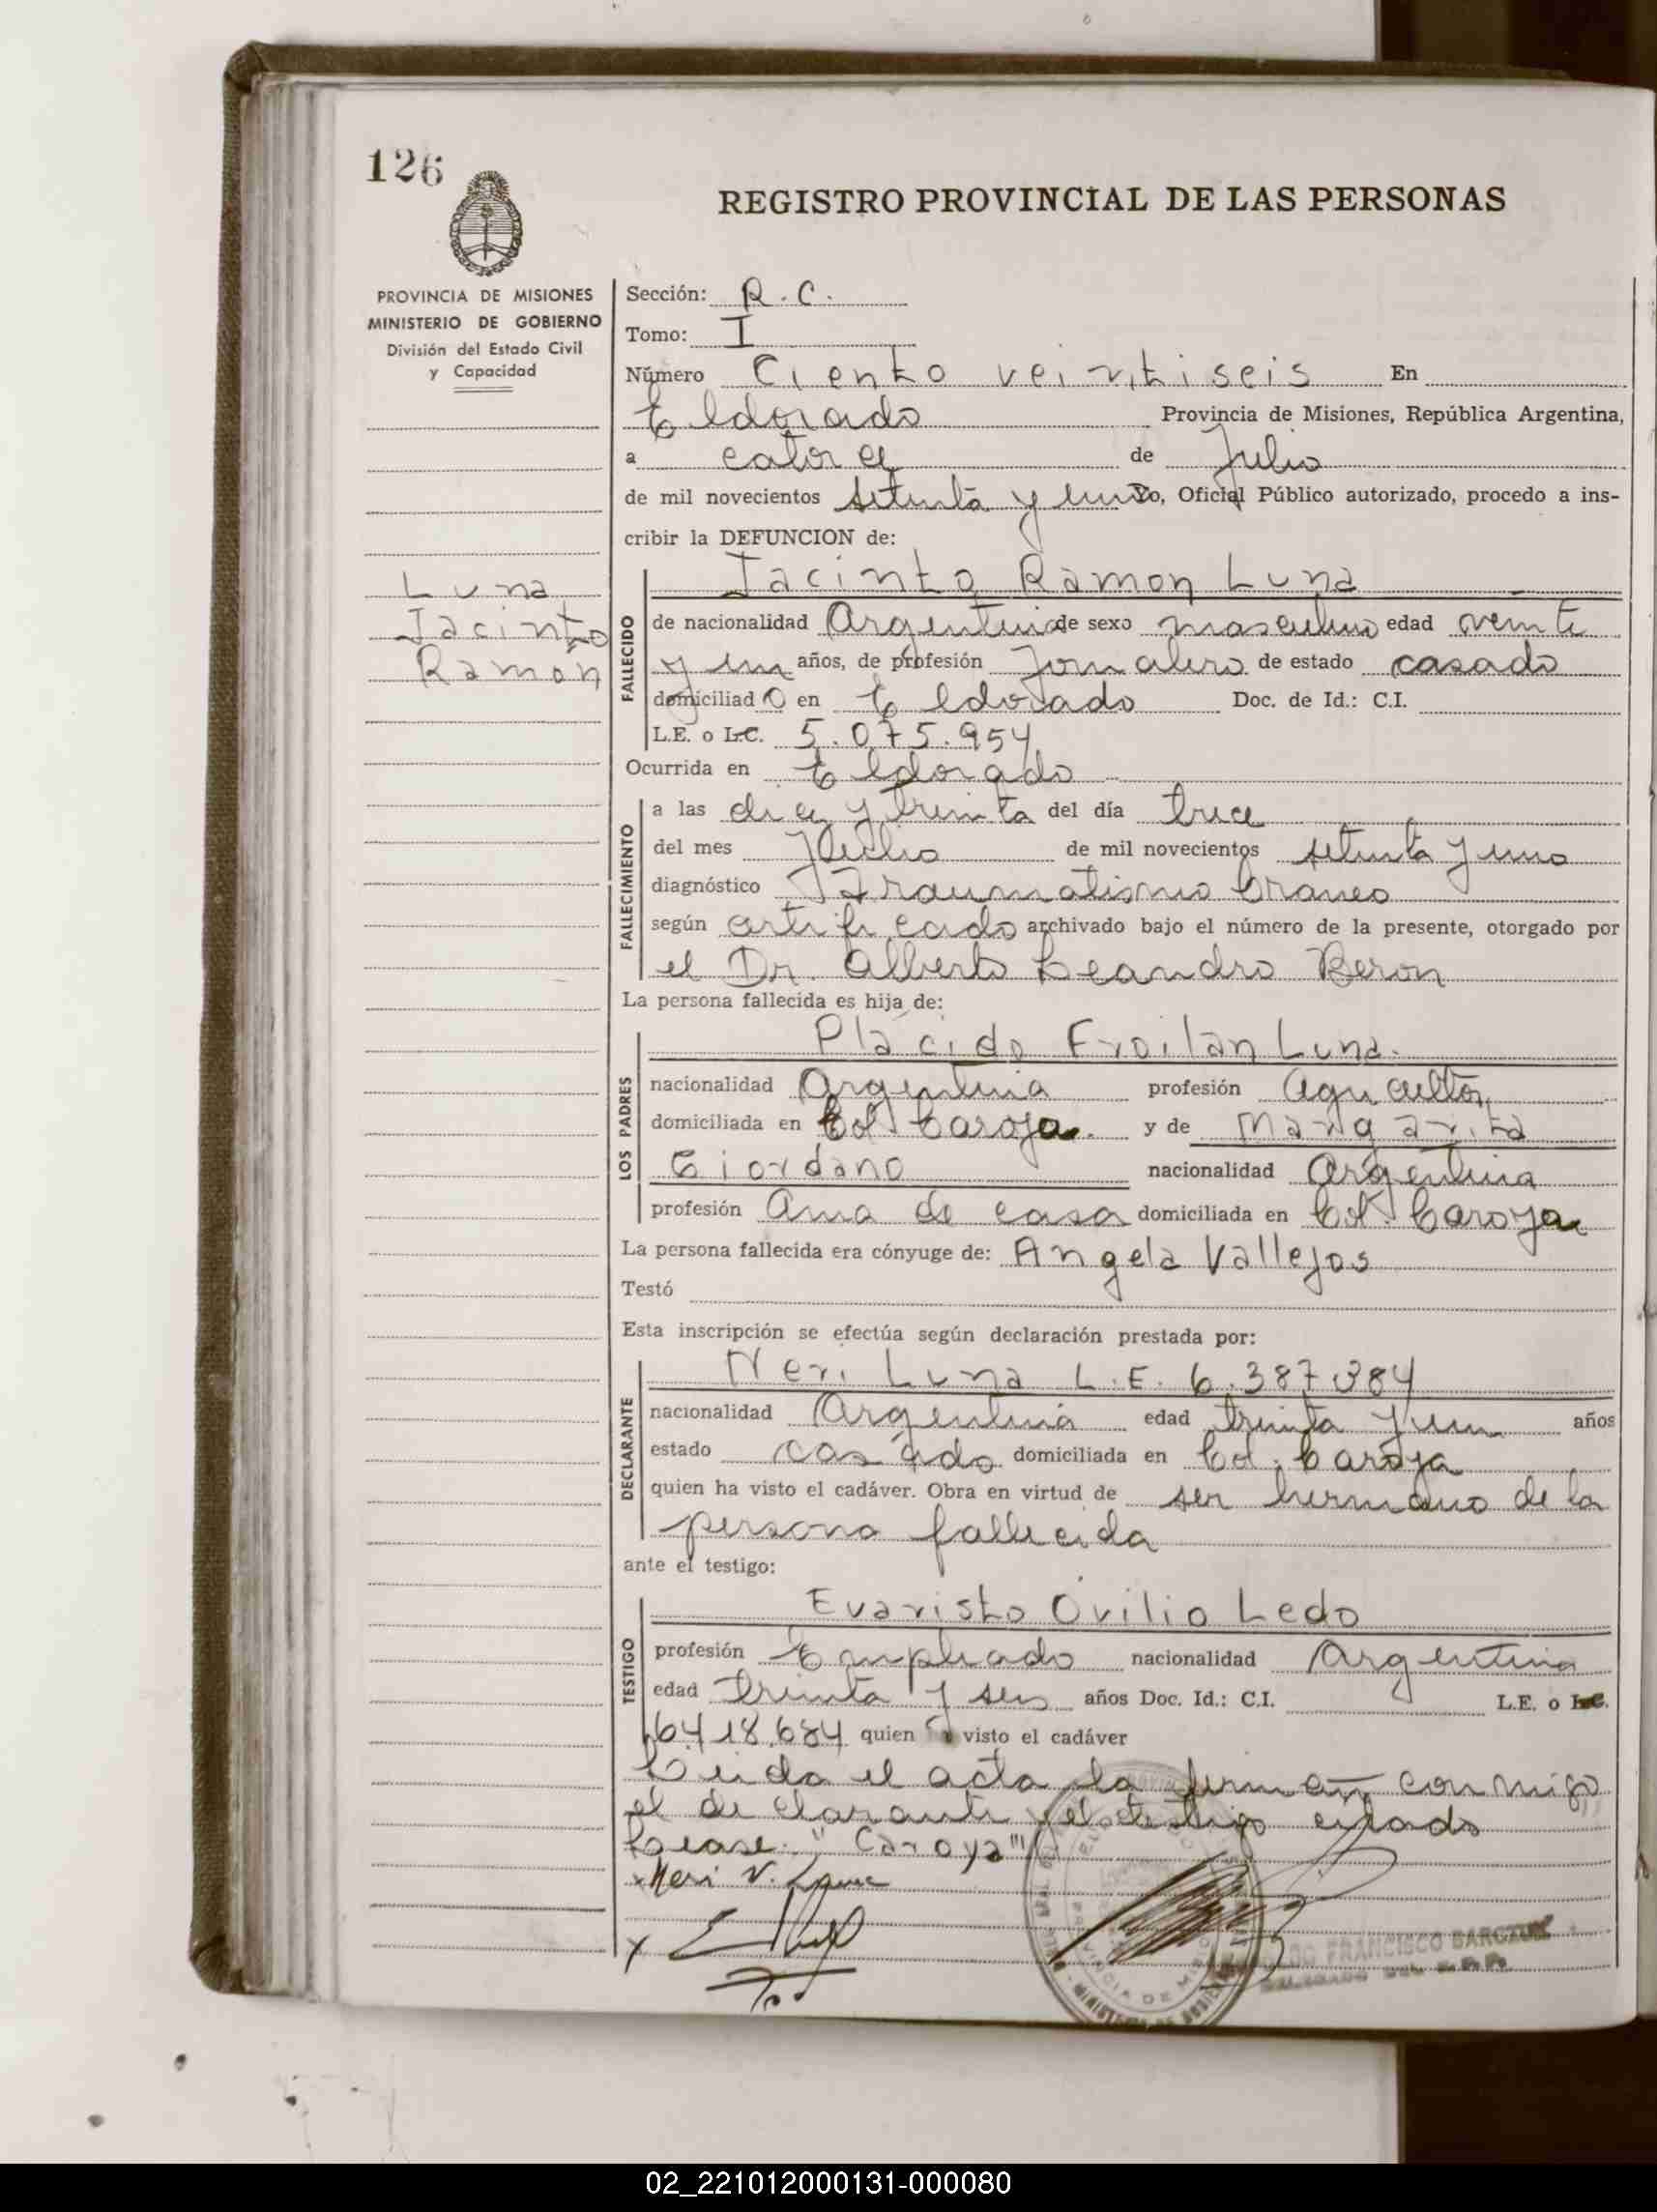 126
REGISTRO PROVINCIAL DE LAS PERSONAS
PROVINCIA DE MISIONES
MINISTERIO DE GOBIERNO
División del Estado Civil
y Capacidad
Luna
Jacinto
Ramón
Sección: R.C.
Tomo: I
Número Ciento veintiseis En
Eldorado Provincia de Misiones, República Argentina,
a catorce de Julio
de mil novecientos setenta y uno Yo, Oficial Público autorizado, procedo a ins-
cribir la DEFUNCION de:
Jacinto Ramon Luna
FALLECIDO
de nacionalidad Argentina de sexo masculino edad veinte
y un años, de profesión Jornalero de estado casado
domiciliado en Eldorado Doc. de Id.: C.I.
L.E. o L.C. 5.075.954
Ocurrida en Eldorado
FALLECIMIENTO
a las diez y treinta del día trece
del mes Julio de mil novecientos setenta y uno
diagnóstico Traumatismo Craneo
según certificado archivado bajo el número de la presente, otorgado por
el Dr. Alberto Leandro Beron
La persona fallecida es hija de:
LOS PADRES
Plácido Froilan Luna.
nacionalidad Argentina profesión Agricultor
domiciliada en Col. Caroja. y de Margarita
Giordano nacionalidad Argentina
profesión Ama de casa domiciliada en Col. Caroya
La persona fallecida era cónyuge de: Angela Vallejos
Testó
Esta inscripción se efectúa según declaración prestada por:
DECLARANTE
Neri Luna L.E. 6.387.384
nacionalidad Argentina edad treinta y un años
estado casado domiciliada en Col. Caroja
quien ha visto el cadáver. Obra en virtud de ser hermano de la
persona fallecida
ante el testigo:
TESTIGO
Evaristo Ovilio Ledo
profesión Empleado nacionalidad Argentina
edad treinta y seis años Doc. Id.: C.I. L.E. o L.C.
6.418.684 quien visto el cadáver
Leida el acta la firman conmigo
el declarante y el testigo citado
Lease: "Caroya"
Neri V. Luna
FRANCISCO
02_221012000131-000080